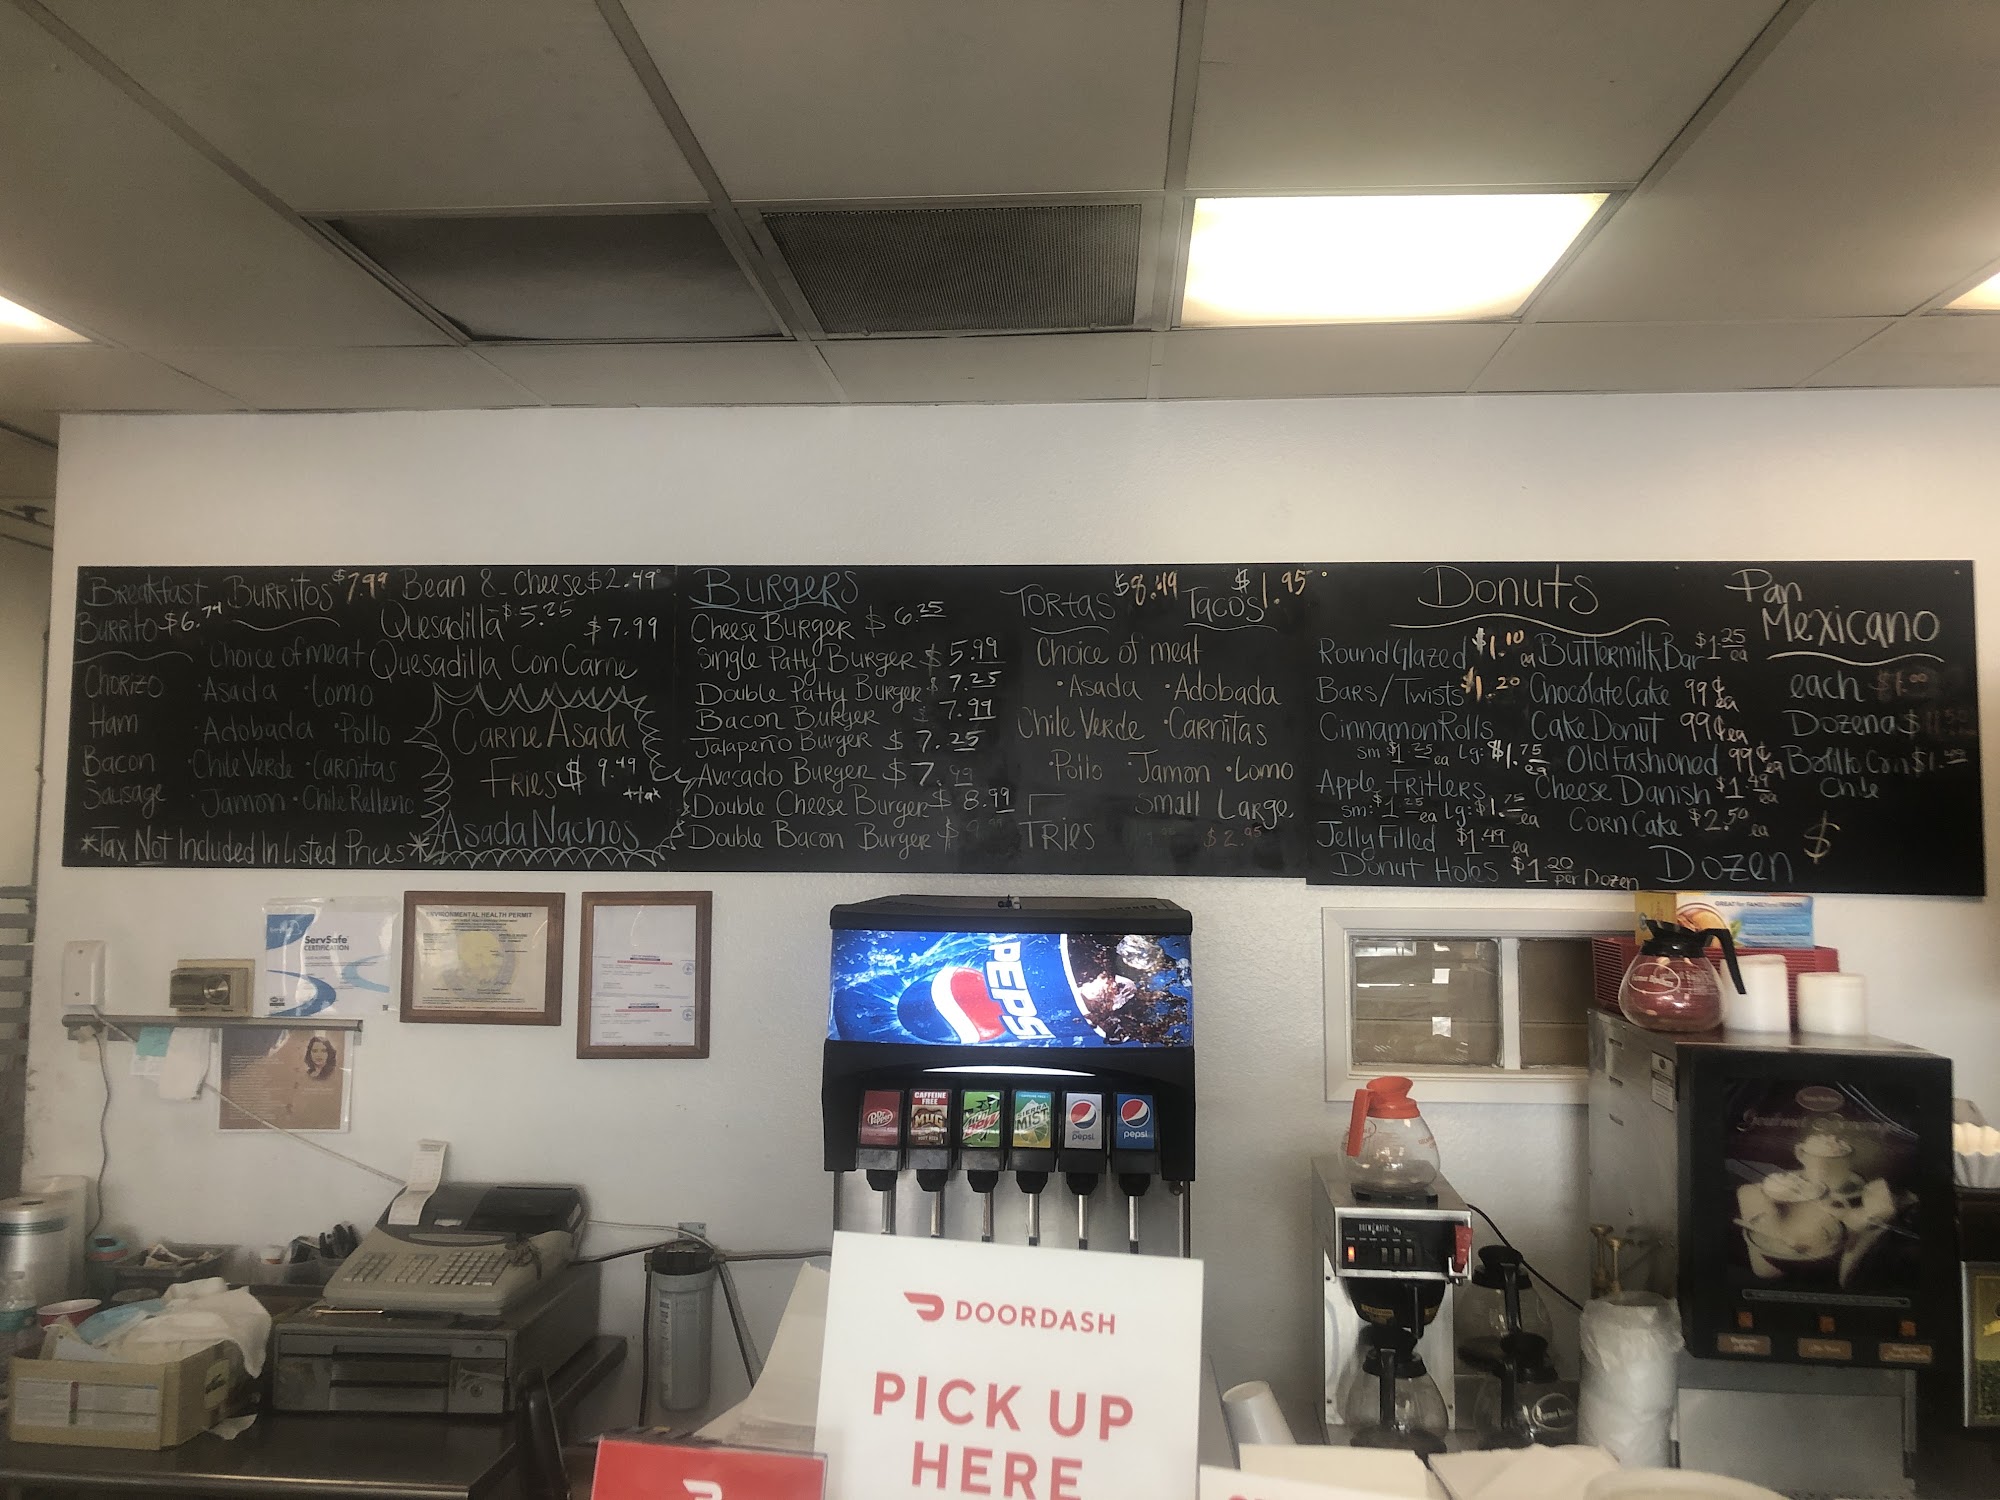 Breakfast
Burrito $6.79
Chorizo
Ham
Bacon
Sausage
Burritos $7.99
Choice of meat
·Asada ·Lomo
·Adobada ·Pollo
·Chile Verde ·Carnitas
·Jamon ·Chile Relleno
*Tax Not Included In Listed Prices*
Bean & Cheese $2.49
Quesadilla $5.25
$7.99
Quesadilla Con Carne
Carne Asada
Fries $9.49
+tax
Asada Nachos
Burgers
Cheese Burger $6.25
Single Patty Burger $5.99
Double Patty Burger $7.25
Bacon Burger $7.99
Jalapeño Burger $7.25
Avocado Burger $7.99
Double Cheese Burger $8.99
Double Bacon Burger
Tortas $8.49
Tacos $1.95
Choice of meat
·Asada ·Adobada
Chile Verde ·Carnitas
·Pollo ·Jamon ·Lomo
Small Large
Fries $2.95
Donuts
Round Glazed $1.10 ea
Bars/Twists $1.20
Cinnamon Rolls
sm: $1.25 ea Lg: $1.75 ea
Apple Fritters
sm: $1.25 ea Lg: $1.75 ea
Jelly Filled $1.49 ea
Donut Holes $1.20 per Dozen
Buttermilk Bar $1.25 ea
Chocolate Cake 99¢ ea
Cake Donut 99¢ ea
Old Fashioned 99¢ ea
Cheese Danish $1.49 ea
Corn Cake $2.50 ea
Dozen $
Pan
Mexicano
each $1.00
Dozena
Bolillo Con $1.49
Chile
ServSafe
CERTIFICATION
ENVIRONMENTAL HEALTH PERMIT
PEPSI
Dr Pepper
CAFFEINE
FREE
MUG
ROOT BEER
Mtn Dew
SIERRA
MIST
pepsi
pepsi
GREAT for FAMILY and FRIENDS
BREWMATIC
DOORDASH
PICK UP
HERE